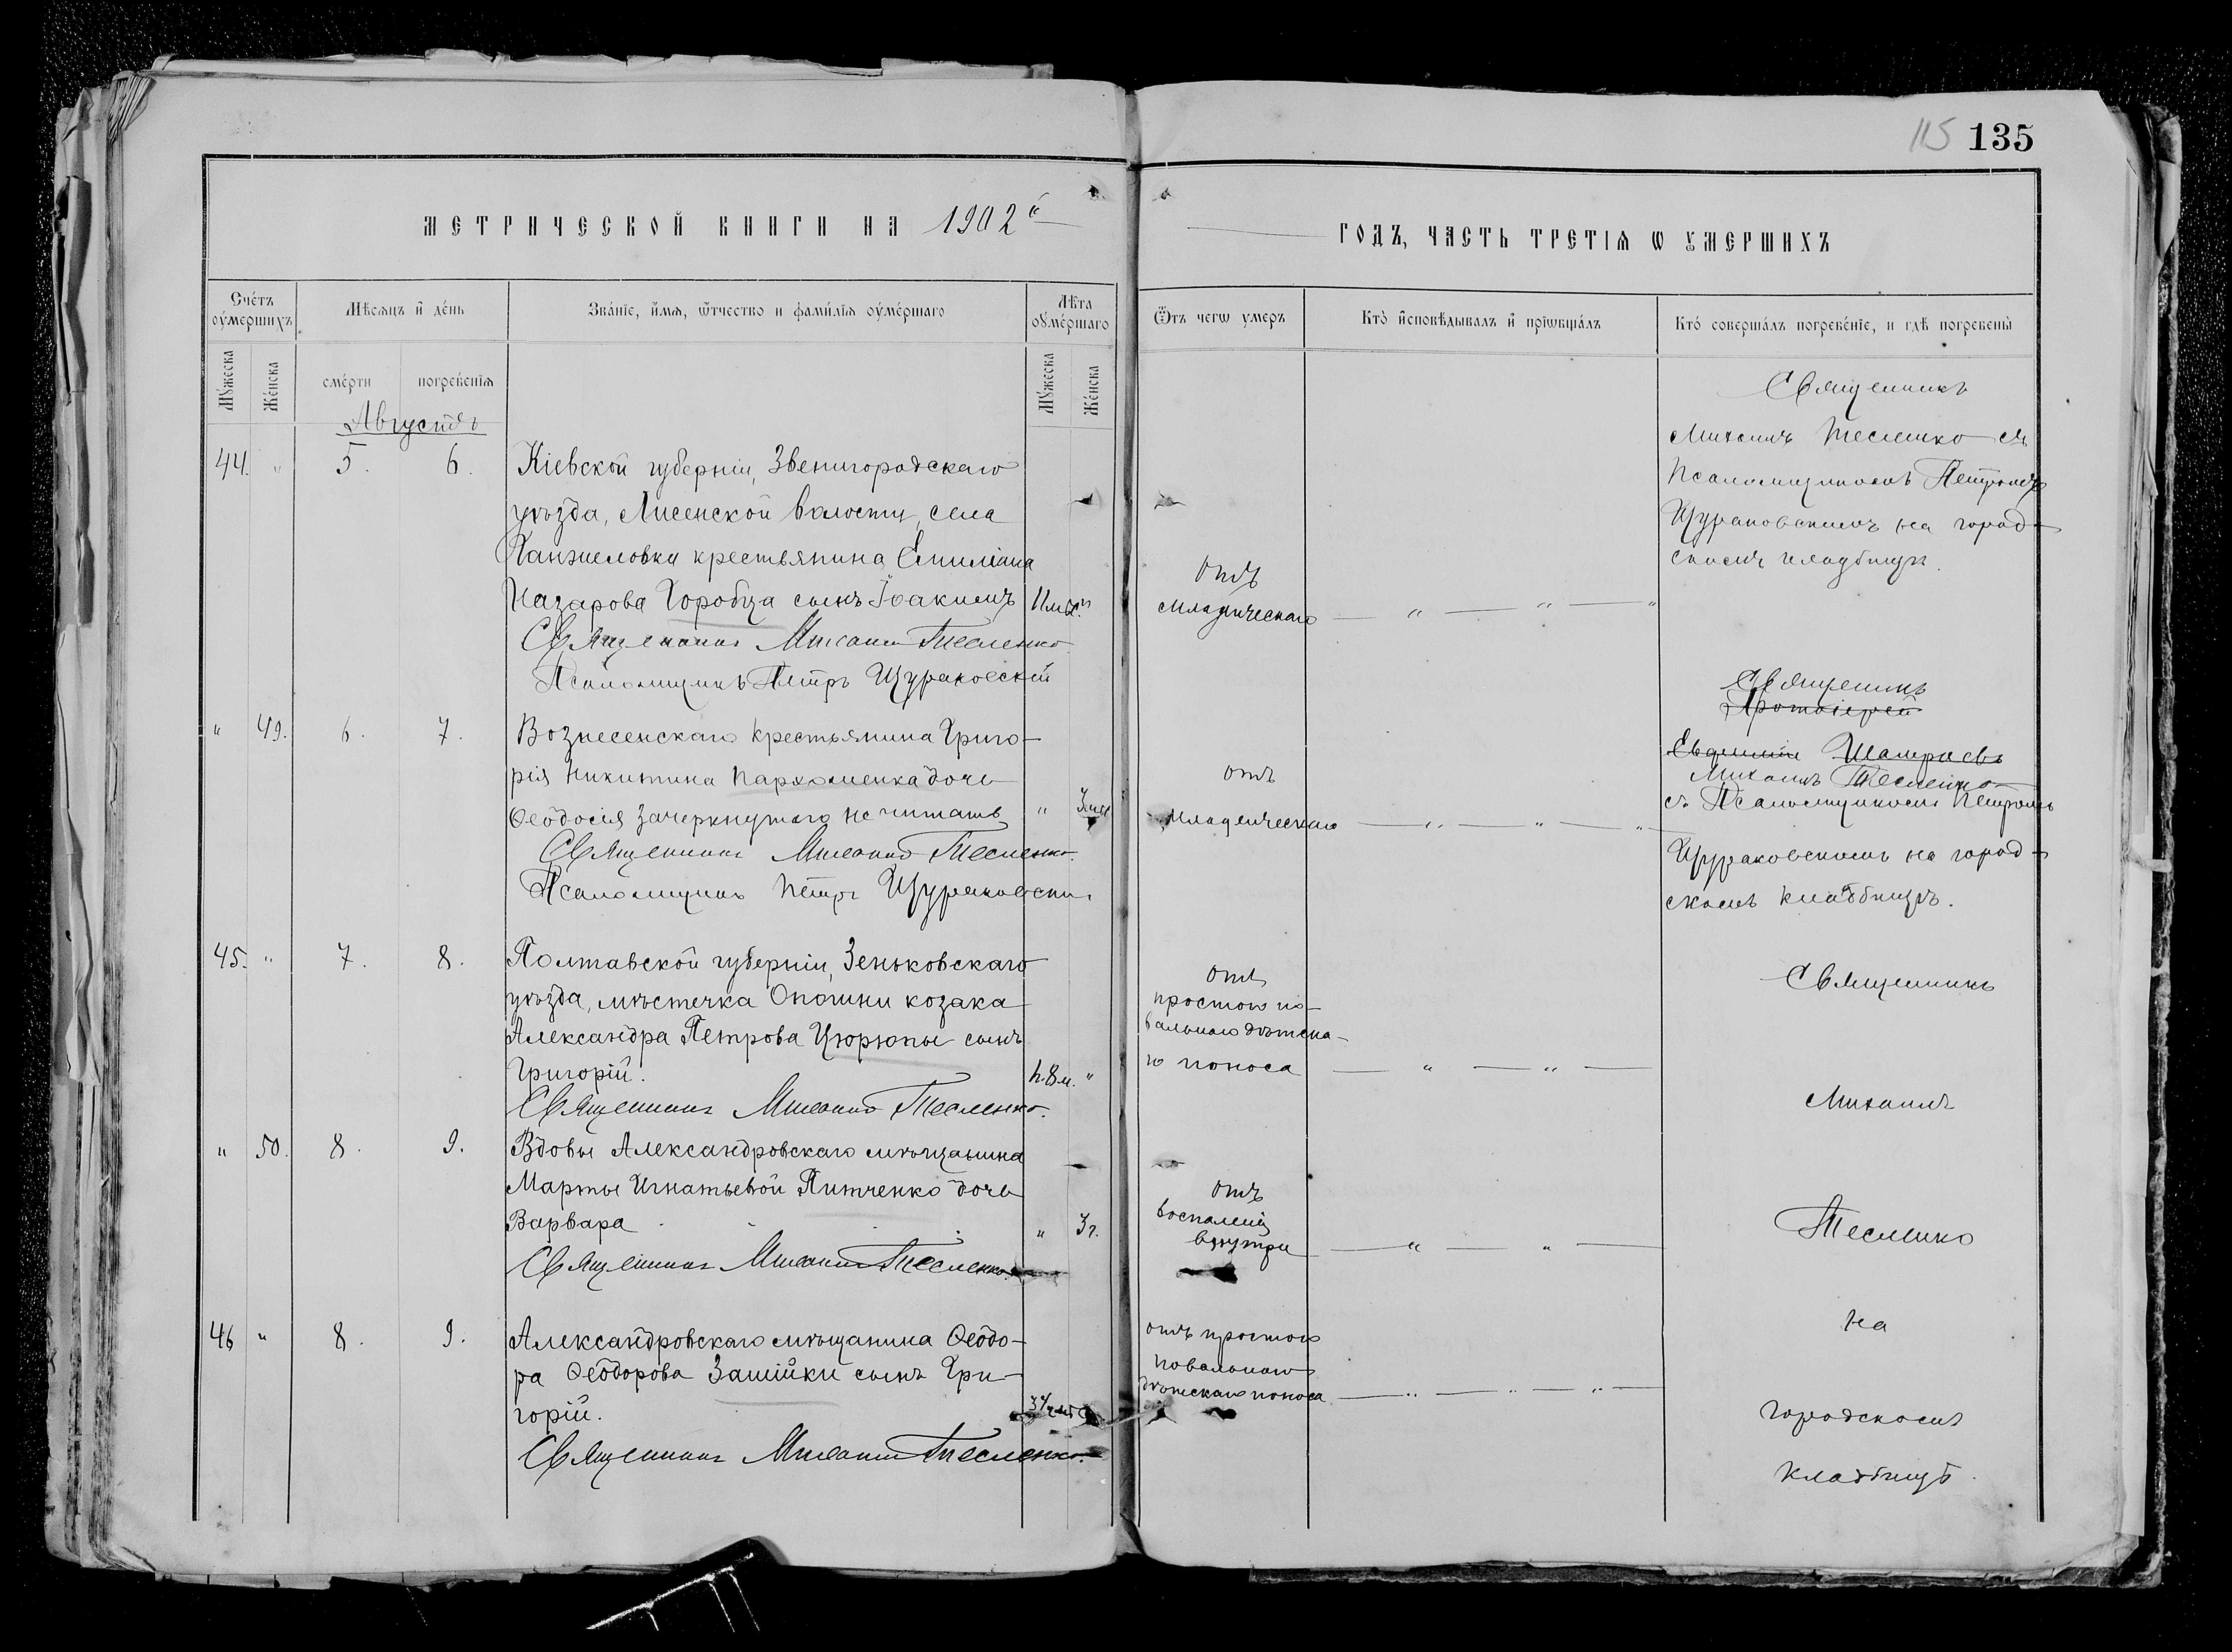 115 135
МЕТРИЧЕСКОЙ КНИГИ НА 1902й
ГОДЪ, ЧАСТЬ ТРЕТІѦ Ѡ УМЕРШИХЪ
Сче́тъ оумершихъ
Мѣсяцъ и де́нь
Зва́ніе, и́мя, ѿтчество и фами́лія оуме́ршаго
Лѣта оуме́ршаго
Ѿтъ чегѡ умеръ
Кто̀ исповѣдывалъ и̂ прїѡбща́лъ
Кто́ соверша́лъ погребе́ніе, и гдѣ̀ погребены̀
Му́жеска
Же́нска
сме́рти
погребенія
Му́жеска
Же́нска
Августъ
44. " 5. 6.
Кіевской губерніи, Звенигородскаго
уѣзда, Лисенской волости, села
крестьянина Емиліана
Назарова Горобца сынъ Іоакимъ
Священникъ Михаилъ Тесленко
Псаломщикъ Петръ Щураковскій
отъ
младенческаго
Священникъ
Михаилъ Тесленко съ
Псаломщикомъ Петромъ
Щураковскимъ на город-
скомъ кладбищѣ.
" 49. 6. 7.
Вознесенскаго крестьянина Григо-
рія Никитина Пархоменка дочь
Ѳеодосія зачеркнутаго не читать
Священникъ Михаилъ Тесленко.
Псаломщикъ Петръ Щураковскій
отъ
младенческаго
Священникъ
Протоіерей
Михаилъ Тесленко
съ Псаломщикомъ Петромъ
Щураковскимъ на город-
скомъ кладбищѣ.
45. " 7. 8.
Полтавской губерніи, Зеньковскаго
уѣзда, мѣстечка Опошни козака
Александра Петрова Цюрюпы сынъ
Григорій.
8 м. "
Священникъ Михаилъ Тесленко.
отъ
простого по-
вальнаго дѣтска-
го поноса
Священникъ
Михаилъ
" 50. 8. 9.
Вдовы Александровскаго мѣщанина
Марты Игнатьевой Питченко дочь
Варвара
" 3 г.
Священникъ Михаилъ Тесленко.
отъ
воспаленія
внутри
Тесленко
46 " 8. 9.
Александровскаго мѣщанина Ѳеодо-
ра Ѳеодорова Зашійки сынъ Гри-
горій.
Священникъ Михаилъ Тесленко.
отъ простого
повальнаго
дѣтскаго поноса
на
городскомъ
кладбищѣ.